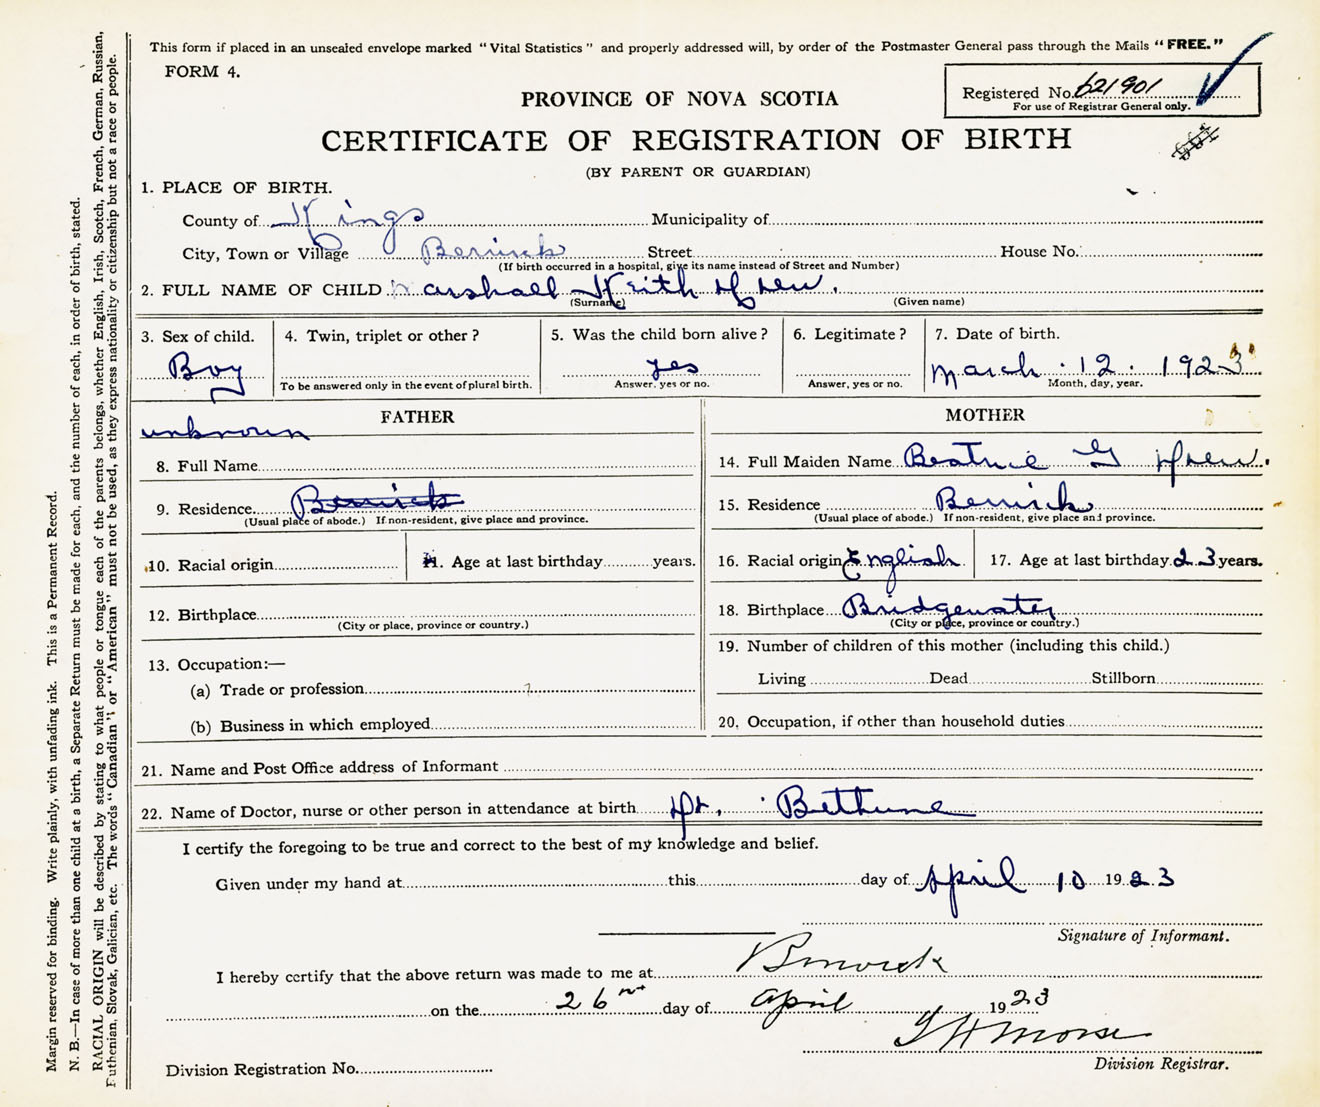 This form if placed in an unsealed envelope marked "Vital Statistics" and properly addressed will, by order of the Postmaster General pass through the Mails "FREE."
FORM 4.
Registered No. 621901
For use of Registrar General only.
PROVINCE OF NOVA SCOTIA
CERTIFICATE OF REGISTRATION OF BIRTH
(BY PARENT OR GUARDIAN)
1. PLACE OF BIRTH.
County of Kings Municipality of
City, Town or Village Berwick Street House No.
(If birth occurred in a hospital, give its name instead of Street and Number)
2. FULL NAME OF CHILD Marshall Keith
(Surname) (Given name)
3. Sex of child. 4. Twin, triplet or other? 5. Was the child born alive? 6. Legitimate? 7. Date of birth.
Boy yes March 12 1923
To be answered only in the event of plural birth. Answer, yes or no. Answer, yes or no. Month, day, year.
FATHER
unknown
8. Full Name
9. Residence Berwick
(Usual place of abode.) If non-resident, give place and province.
10. Racial origin 11. Age at last birthday years.
12. Birthplace
(City or place, province or country.)
13. Occupation:—
(a) Trade or profession
(b) Business in which employed
MOTHER
14. Full Maiden Name Beatrice G
15. Residence Berwick
(Usual place of abode.) If non-resident, give place and province.
16. Racial origin English 17. Age at last birthday 23 years.
18. Birthplace Bridgewater
(City or place, province or country.)
19. Number of children of this mother (including this child.)
Living Dead Stillborn
20. Occupation, if other than household duties
21. Name and Post Office address of Informant
22. Name of Doctor, nurse or other person in attendance at birth Dr. Bethune
I certify the foregoing to be true and correct to the best of my knowledge and belief.
Given under my hand at this day of April 10 1923
Signature of Informant.
I hereby certify that the above return was made to me at Berwick
on the 26 day of April 1923
Morse
Division Registrar.
Division Registration No.
Margin reserved for binding. Write plainly, with unfading ink. This is a Permanent Record.
N. B.—In case of more than one child at a birth, a Separate Return must be made for each, and the number of each, in order of birth, stated.
RACIAL ORIGIN will be described by stating to what people or tongue each of the parents belongs, whether English, Irish, Scotch, French, German, Russian,
Ruthenian, Slovak, Galician, etc. The words "Canadian" or "American" must not be used, as they express nationality or citizenship but not a race or people.